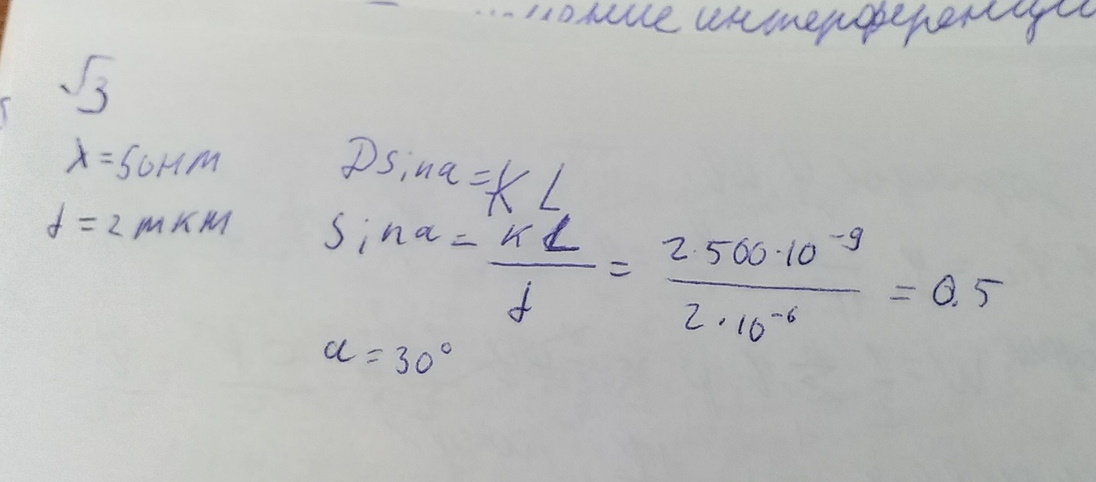 интерференци
√3
λ = 50 нм
d = 2 мкм
D sin a = K L
sin a = K L / d = 2·500·10⁻⁹ / 2·10⁻⁶ = 0.5
a = 30°